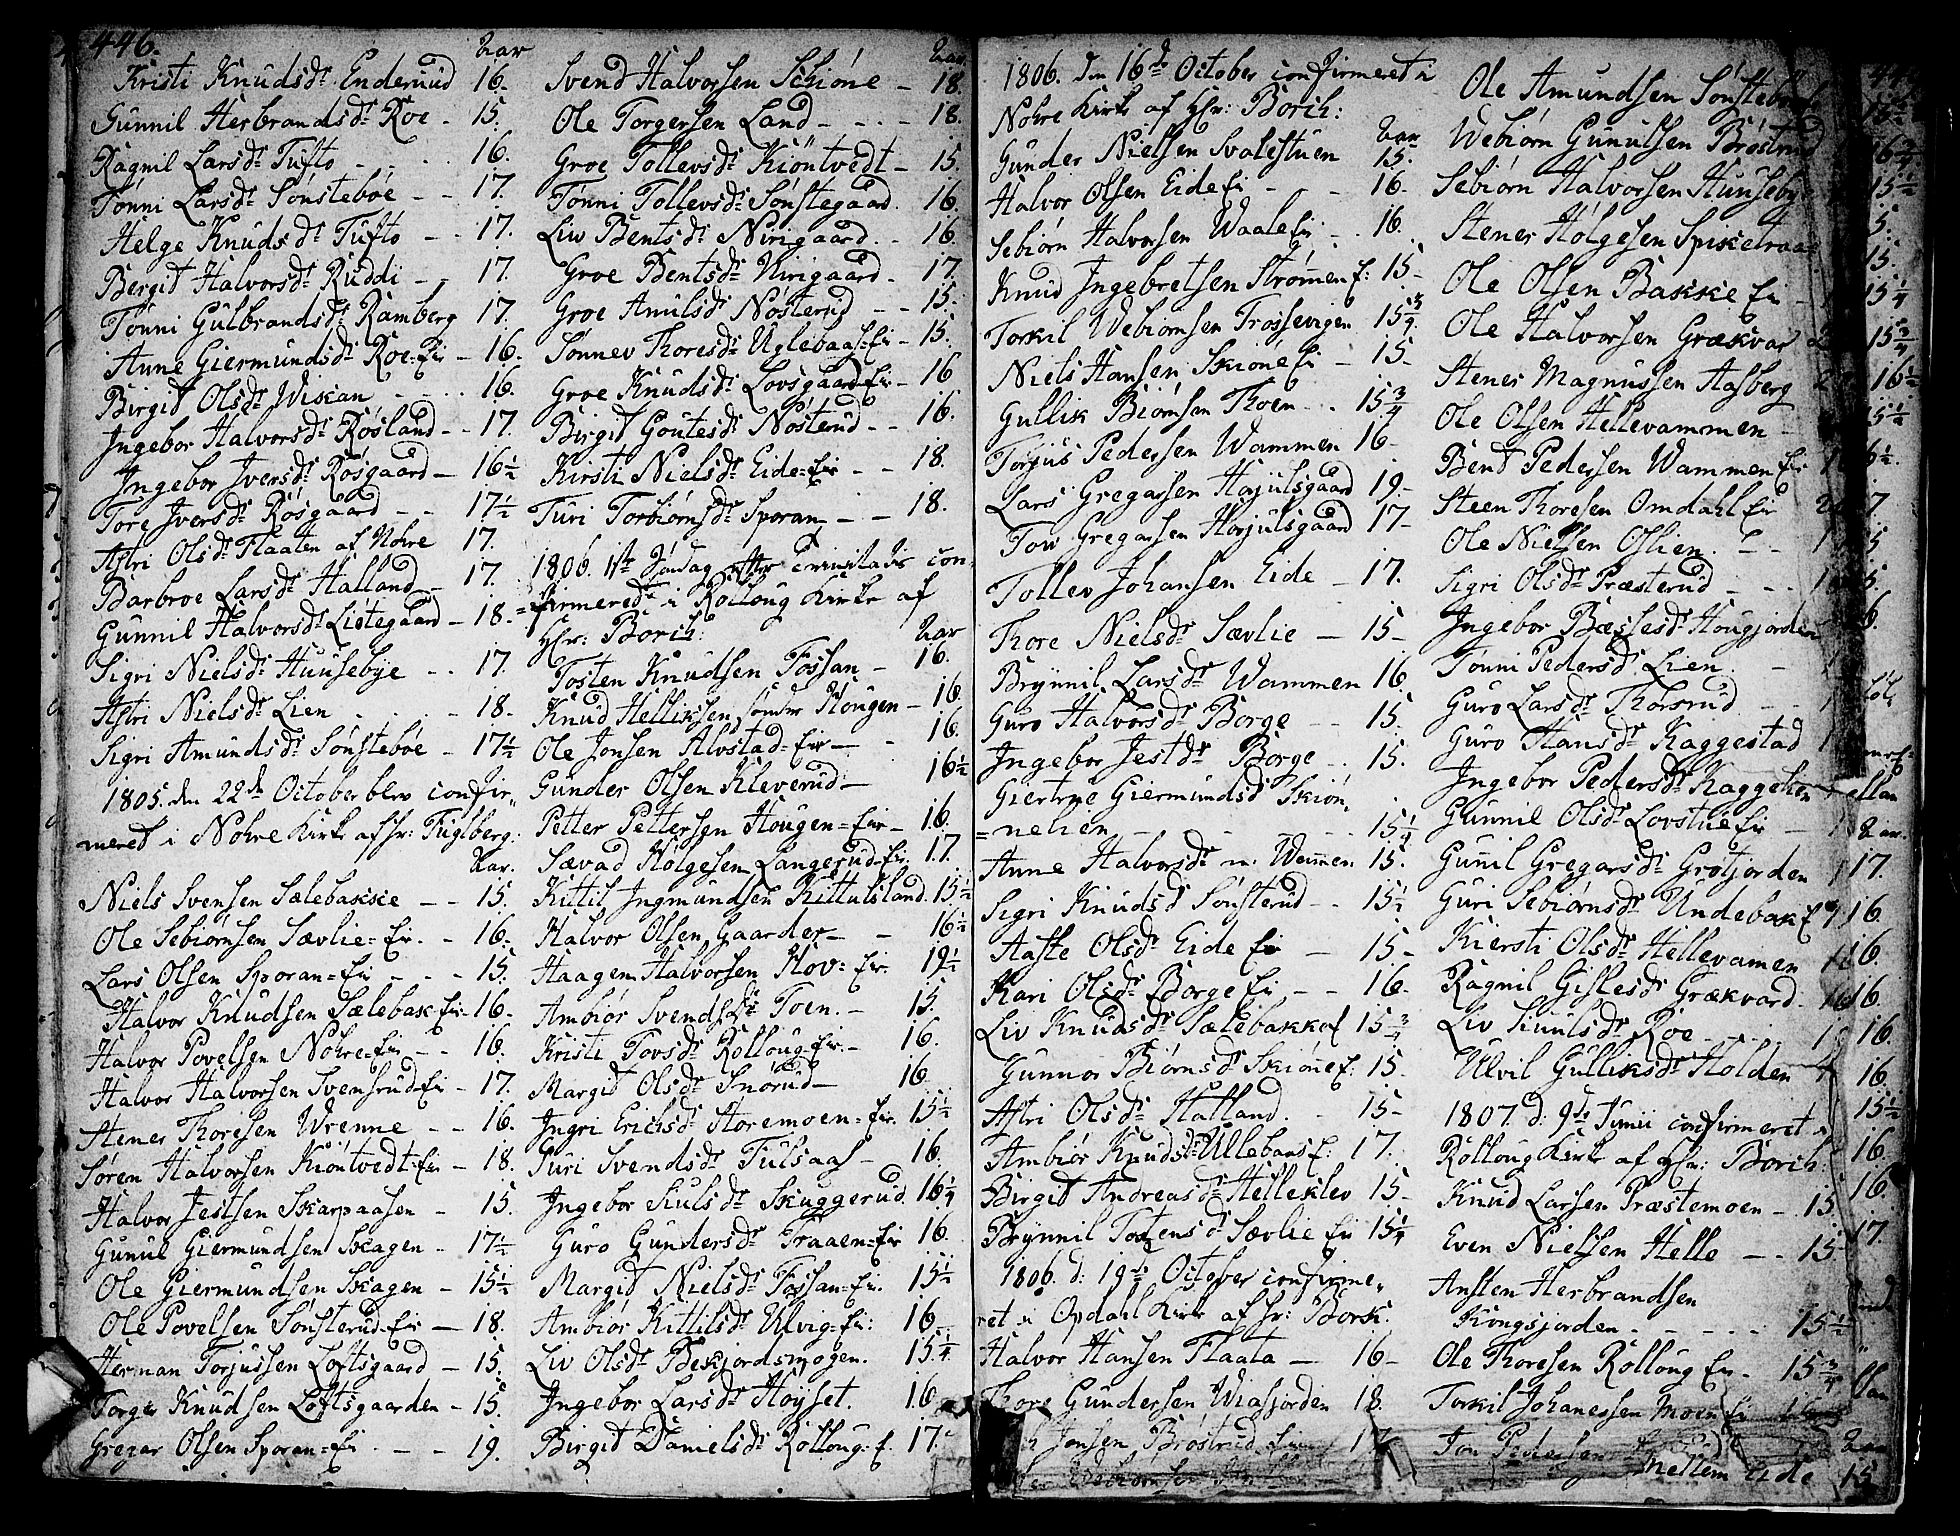 446.
Aar
Kristi Knudsdr. Enderud 16.
Gunnil Herbrandsdr. Roe - 15.
Ragnil Larsdr. Tufto - - - 16.
Tónni Larsdr. Sónstebóe - - 17.
Helge Knudsdr. Tufto - - 17.
Bergit Halvorsdr. Ruddi - - 17.
Tónni Gulbrandsdr. Ramberg 17.
Anne Giermundsdr. Roe-Eir - 16.
Birgit Olsdr. Wiskan - - - 16.
Ingebor Halvorsdr. Rósland - - 17.
Ingebor Iversdr. Rósgaard - 16½
Tore Iversdr. Rósgaard - - 17½
Astri Olsdr. Flaaten af Nohre 17.
Barbroe Larsdr. Halland - 17.
Gunnil Halvorsdr. Listegaard - 18 -
Sigri Nielsdr. Huusebye - - 17.
Astri Nielsdr. Lien - - - 18.
Sigri Amundsdr. Sónstebóe - 17½
1805. den 22de October blev confir„
meret i Nohre Kirke af hr: Fuglberg.
Aar.
Niels Svensen Sælebakke - - 15.
Ole Sebiórnsen Sævlie=Eir. - 16.
Lars Olsen Sporan=Eir - - - 15.
Halvor Knudsen Sælebak-Eir- 16.
Halvor Povelsen Nohre-Eir - - 16.
Halvor Halvorsen Svensrud-Eir - 17.
Stener Thoresen Wrenne - - 16.
Sóren Halvorsen Kióntvedt-Eir - 18.
Halvor Jestsen Skarpaasen - 15.
Gunul Giermundsen Skagen - 17½
Ole Giermundsen Skagen - 15½
Ole Povelsen Sónsterud-Eir - 18.
Herman Torjussen Loftsgaard - 15.
Torger Knudsen Loftsgaarden - 15.
Gregar Olsen Sporan=Eir - - - 19.
Aar
Svend Halvorsen Schióne - 18.
Ole Torgersen Land - - - - 18.
Groe Tollevsdr. Kióntvedt - 15.
Tónni Tollevsdr. Sónstegaard. 16
Liv Bentsdr. Nirigaard. - - 16
Groe Bentsdr. Nirigaard - 17.
Groe Amulsdr. Nósterud - - 15.
Sónnev Thoresdr. Uglebaas=Eir - 15.
Groe Knudsdr. Lovsgaard-Eir - 16
Birgit Goutesdr. Nósterud - - 16.
Kirsti Nielsdr. Eide=Eir - - 18.
Turi Torbiórnsdr. Sporan - - 18.
1806. 1ste Sóndag efter trinitatis con„
firmerede i Rolloug Kirke af
Hr: Borch:
Aar
Tosten Knudsen Fossan - 16.
Knud Helliksen sónder Hougen - 16.
Ole Jonsen Alvstad=Eir - - 16.
Gunder Olsen Kleverud - 16½
Petter Pettersen Hougen=Eir - 16.
Sævad Holgesen Langerud-Eir 17.
Kittil Ingmundsen Kittulsland. 15½
Halvor Olsen Gaarder - - 16½
Haagen Halvorsen Hov=Eir 19½
Ambiór Svendsdr. Toen. - 15.
Kristi Tovsdr. Rolloug-Eir - 16.
Margit Olsdr. Snórud - 16
Ingri Erichsdr. Storemoen=Eir. 15½
Turi Svendsdr. Tulsaas - 16.
Ingebor Kulsdr. Skuggerud. 16¼
Guro Gundersdr. Traaen=Eir 16.
Margit Nielsdr. Fossan=Eir. 15½
Ambiór Kittilsdr. Ulvig-Eir: 16
Liv Olsdr. Beskjordsmogen. 15¼
Ingebor Larsdr. Hóyset. 16
Birgit Danielsdr. Rolloug=E. 17.
1806. den 16de October confirmeret i
Nohre Kirke af Hr: Borch:
Aar
Gunder Nielsen Svalestuen 15.
Halvor Olsen Eide Eir - - 16.
Sebiórn Halvorsen Waale Eir - 16.
Knud Ingebretsen Strómen E: 15-
Torkil Webiórnsen Frossevigen 15¾
Niels Hansen Skióne Ei - 15-
Gullik Biórnsen Thoen - - 15¾
Torjus Pedersen Wammen 16-
Lars Gregarsen Horjulsgaard 19-
Tow Gregarsen Horjulsgaard 17-
Tollev Johansen Eide - 17.
Thore Nielsdr. Sævlie - 15-
Brynnil Larsdr. Wammen 16
Guro Halvorsdr. Borge - - 15.
Ingebor Jestdr. Borge - - 15.
Giertrue Giermundsd Skión„
=nelien - - - - - - 15¼
Anne Halvorsdr. n: Wamen: 15.
Sigri Knudsd Sónsterud - - 15½
Aaste Olsdr. Eide Eir - 15-
Kari Olsdr. Borge Ei - - 16.
Liv Knudsdr. Sælebakkef 15¾
Gunnor Biórnsdr. Skióne E: 15.
Astri Olsdr. Halland. - 15-
Ambiór Knudsdr. Ullebaas E: 17.
Birgit Andreasdr. Helleklev 15-
Brynnil Tostensd Sævlie Ei 15¼
1806. d: 19de October confirme„
ret i Opdahl Kirke af hr: Bork.
Halvor Hansen Flaata - 16-
Thore Gundersen Wiasjorden 18.
Jonsen Bróstrud Eir 17
Ole Amundsen Sónsteb
Webiórn Gunulsen Bróstrud
Sebiórn Halvorsen Huuseby
Stener Holgesen Spiketraa
Ole Olsen Bakke Ei
Ole Halvorsen Grækvar
Stener Magnussen Aasberg
Ole Olsen Hellevammen -
Bent Pedersen Wammen Eir
Steen Thoresen Omdahl Eir
Ole Nielsen Oslien. - -
Sigri Olsdr. Præsterud - - -
Ingebor Bæssesdr. Hougjorden
Tónni Pedersdr. Lien. -
Guro Larsdr. Thorsrud - -
Guro Hansdr. Kaggestad
Ingebor Pedersdr. Kaggehen
Gunnil Olsdr. Lovstue Eir -
Gunil Gregarsdr. Grótjorden
Guri Sebiórnsdr. Undebak E
Kiersti Olsdr. Hellevamen
Ragnil Gislesdr. Grækvard
Liv Kulsdr. Roe - - -
Ulvil Gulliksdr. Holden
1807. d. 9de Junii confirmeret i
Rolloug Kirke af Hr: Borch:
Knud Larsen Præstemoen - 15
Even Nielsen Helle - - 15
Ansten Herbrandsen
Kongsjorden - - - - 15½
Ole Thoresen Rolloug Eir - 15¾
Torkil Johanessen Moen Ei
Jon Pedersen
mellem Eide
15½
16¾
15½
5.
15.
15¼
15¾
16½
15½
6½.
7
5
5.
6.
ellan
Aar.
17.
16.
16.
16.
16.
16.
15½
16.
16.
17.
Aar
15